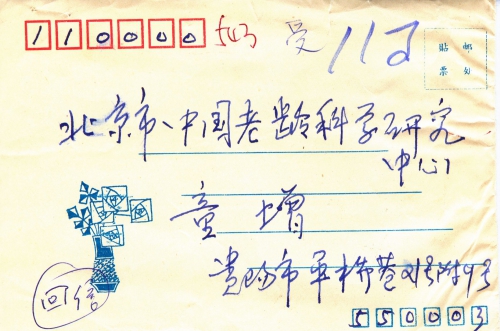 110000 543 受 113
贴 邮
票 处
北京市、中国老龄科学研究
中心
童 增
贵阳市平桥巷21号附9号
回信
550003